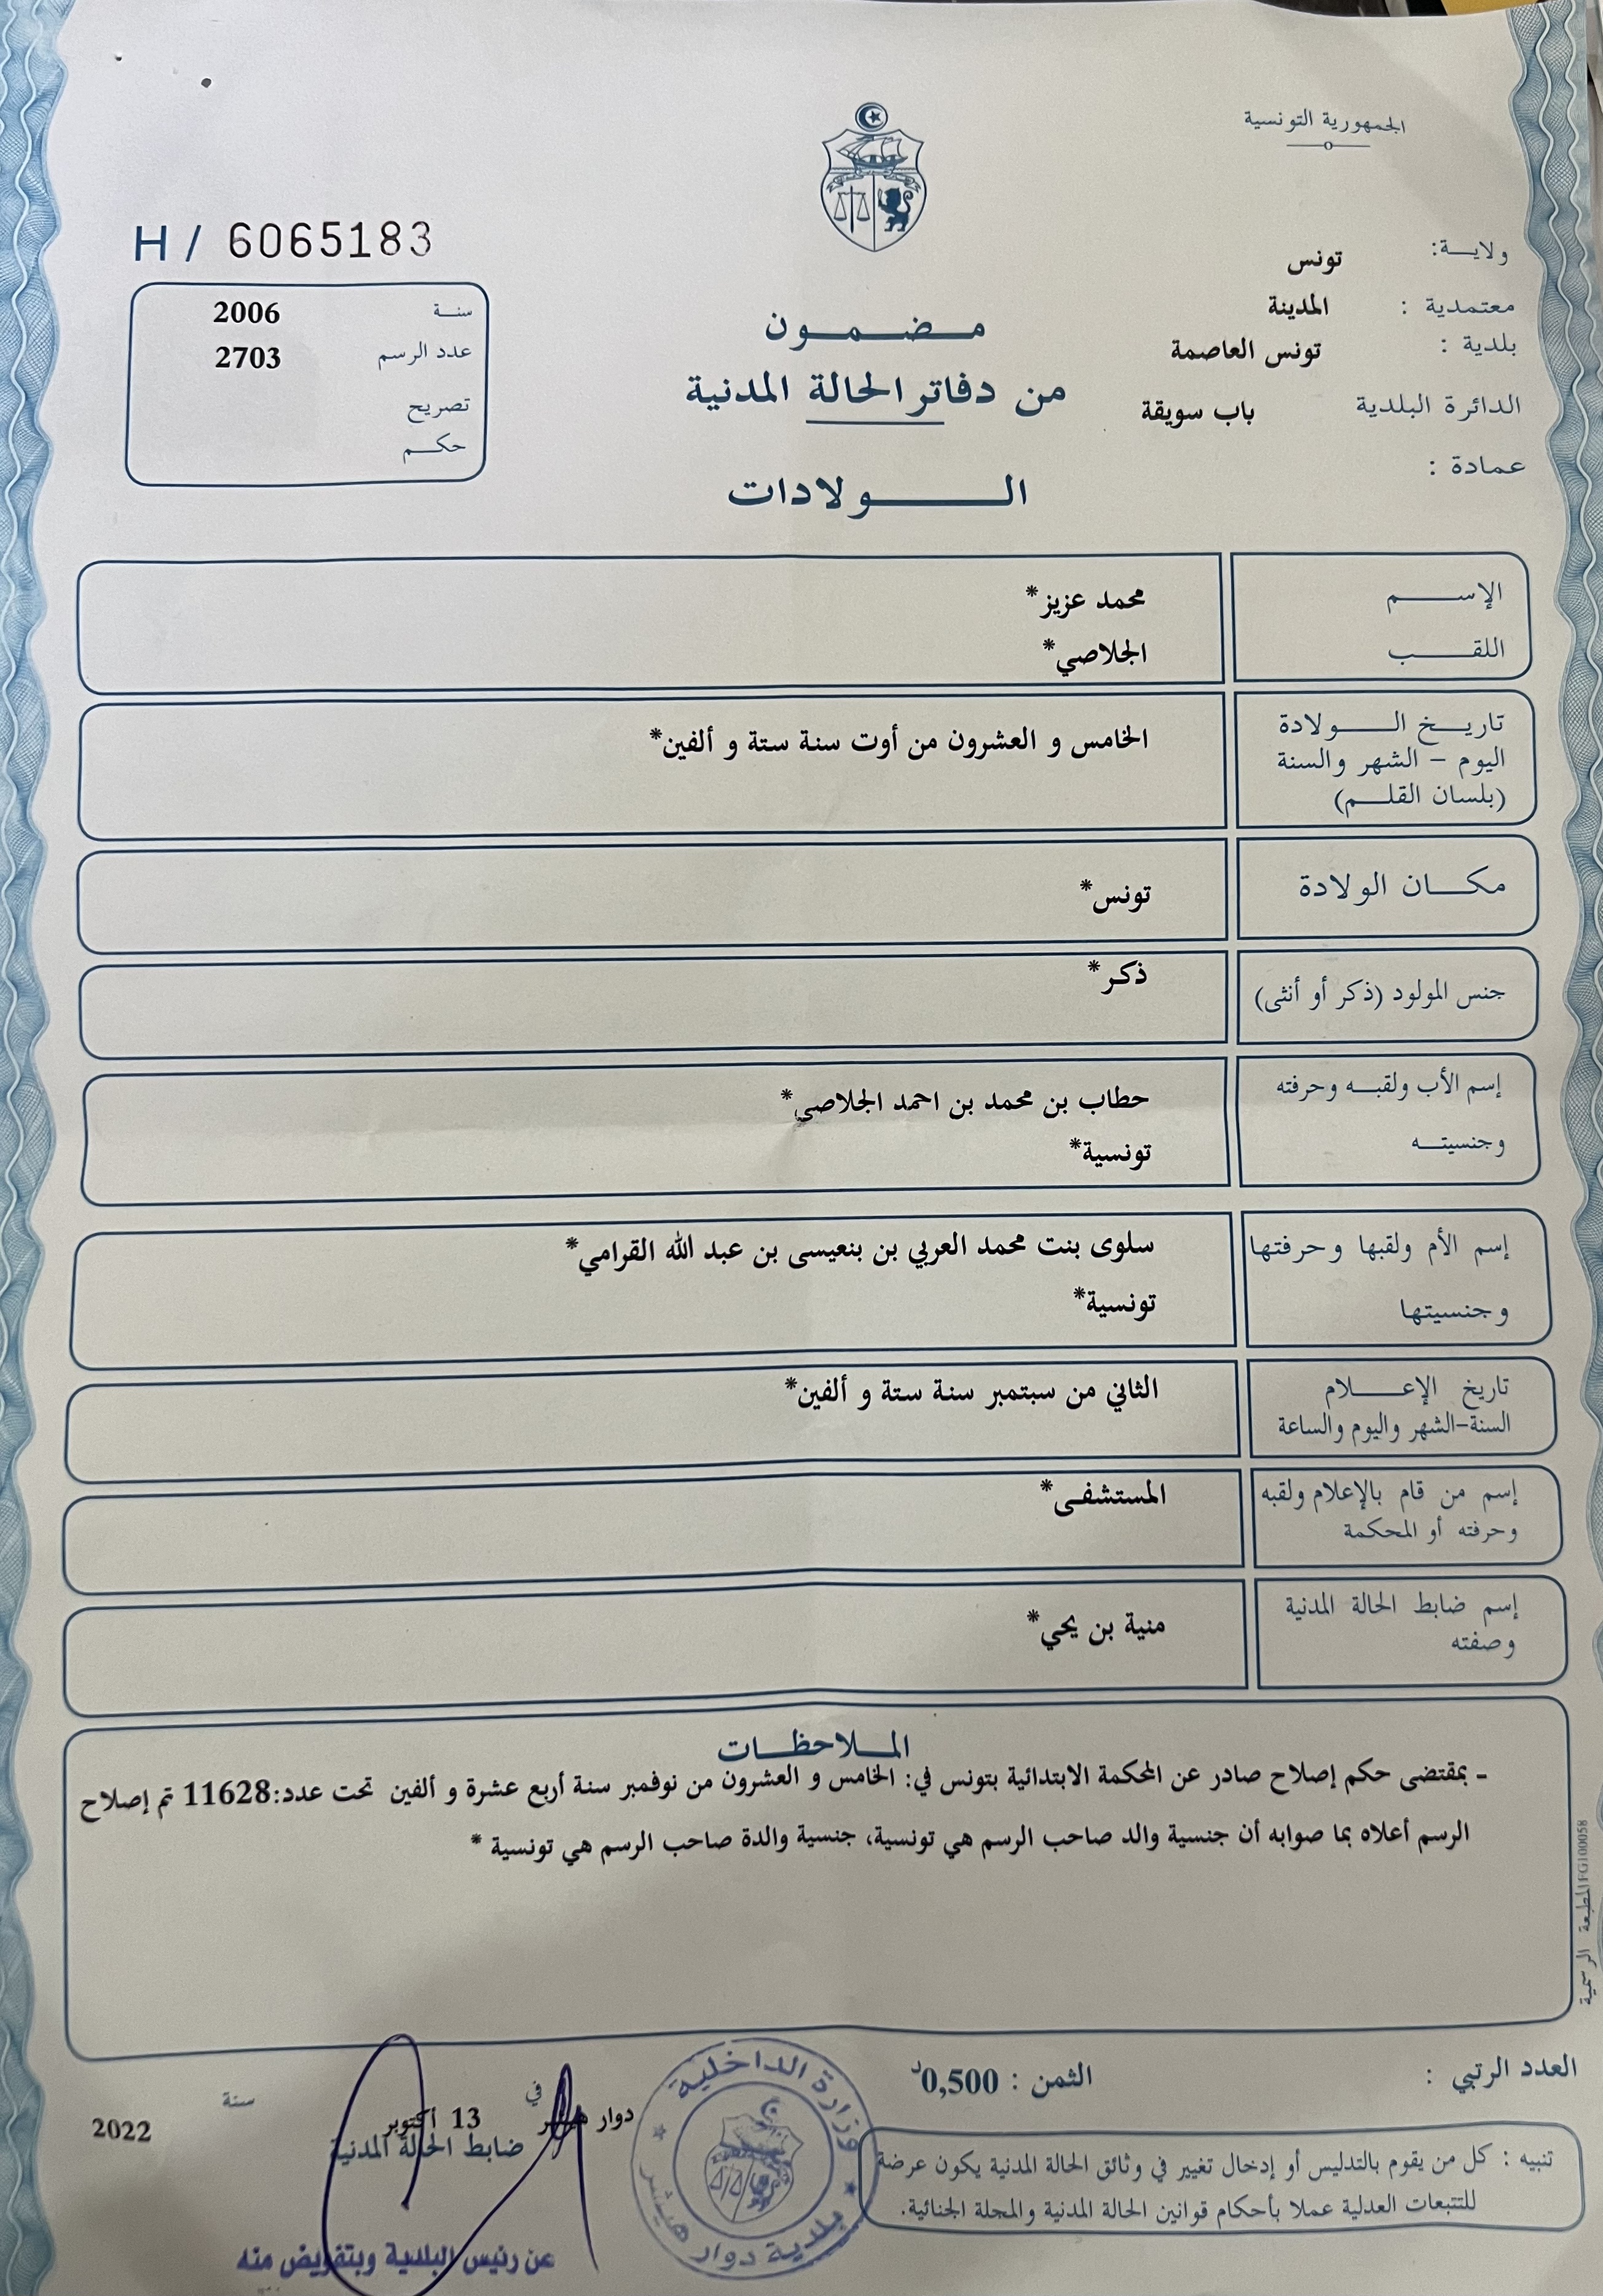 الجمهورية التونسية
ولاية: تونس
معتمدية : المدينة
بلدية : تونس العاصمة
الدائرة البلدية باب سويقة
عمادة :
مضمون
من دفاتر الحالة المدنية
الولادات
H / 6065183
سنة 2006
عدد الرسم 2703
تصريح
حكم
الإسم محمد عزيز*
اللقب الجلاصي*
تاريخ الولادة
اليوم - الشهر والسنة
(بلسان القلم)
الخامس و العشرون من أوت سنة ستة و ألفين*
مكان الولادة تونس*
جنس المولود (ذكر أو أنثى) ذكر*
إسم الأب ولقبه وحرفته حطاب بن محمد بن احمد الجلاصي*
وجنسيته تونسية*
إسم الأم ولقبها وحرفتها سلوى بنت محمد العربي بن بنعيسى بن عبد الله القرامي*
وجنسيتها تونسية*
تاريخ الإعلام الثاني من سبتمبر سنة ستة و ألفين*
السنة-الشهر واليوم والساعة
إسم من قام بالإعلام ولقبه المستشفى*
وحرفته أو المحكمة
إسم ضابط الحالة المدنية منية بن يحي*
وصفته
الملاحظات
- بمقتضى حكم إصلاح صادر عن المحكمة الابتدائية بتونس في: الخامس و العشرون من نوفمبر سنة أربع عشرة و ألفين تحت عدد:11628 تم إصلاح
الرسم أعلاه بما صوابه أن جنسية والد صاحب الرسم هي تونسية، جنسية والدة صاحب الرسم هي تونسية *
المطبعة الرسمية FG100058
العدد الرتبي :
الثمن : 0,500د
تنبيه : كل من يقوم بالتدليس أو إدخال تغيير في وثائق الحالة المدنية يكون عرضة
للتتبعات العدلية عملا بأحكام قوانين الحالة المدنية والمجلة الجنائية.
وزارة الداخلية
بلدية دوار هيشر
دوار هيشر في 13 أكتوبر سنة 2022
ضابط الحالة المدنية
عن رئيس البلدية وبتفويض منه